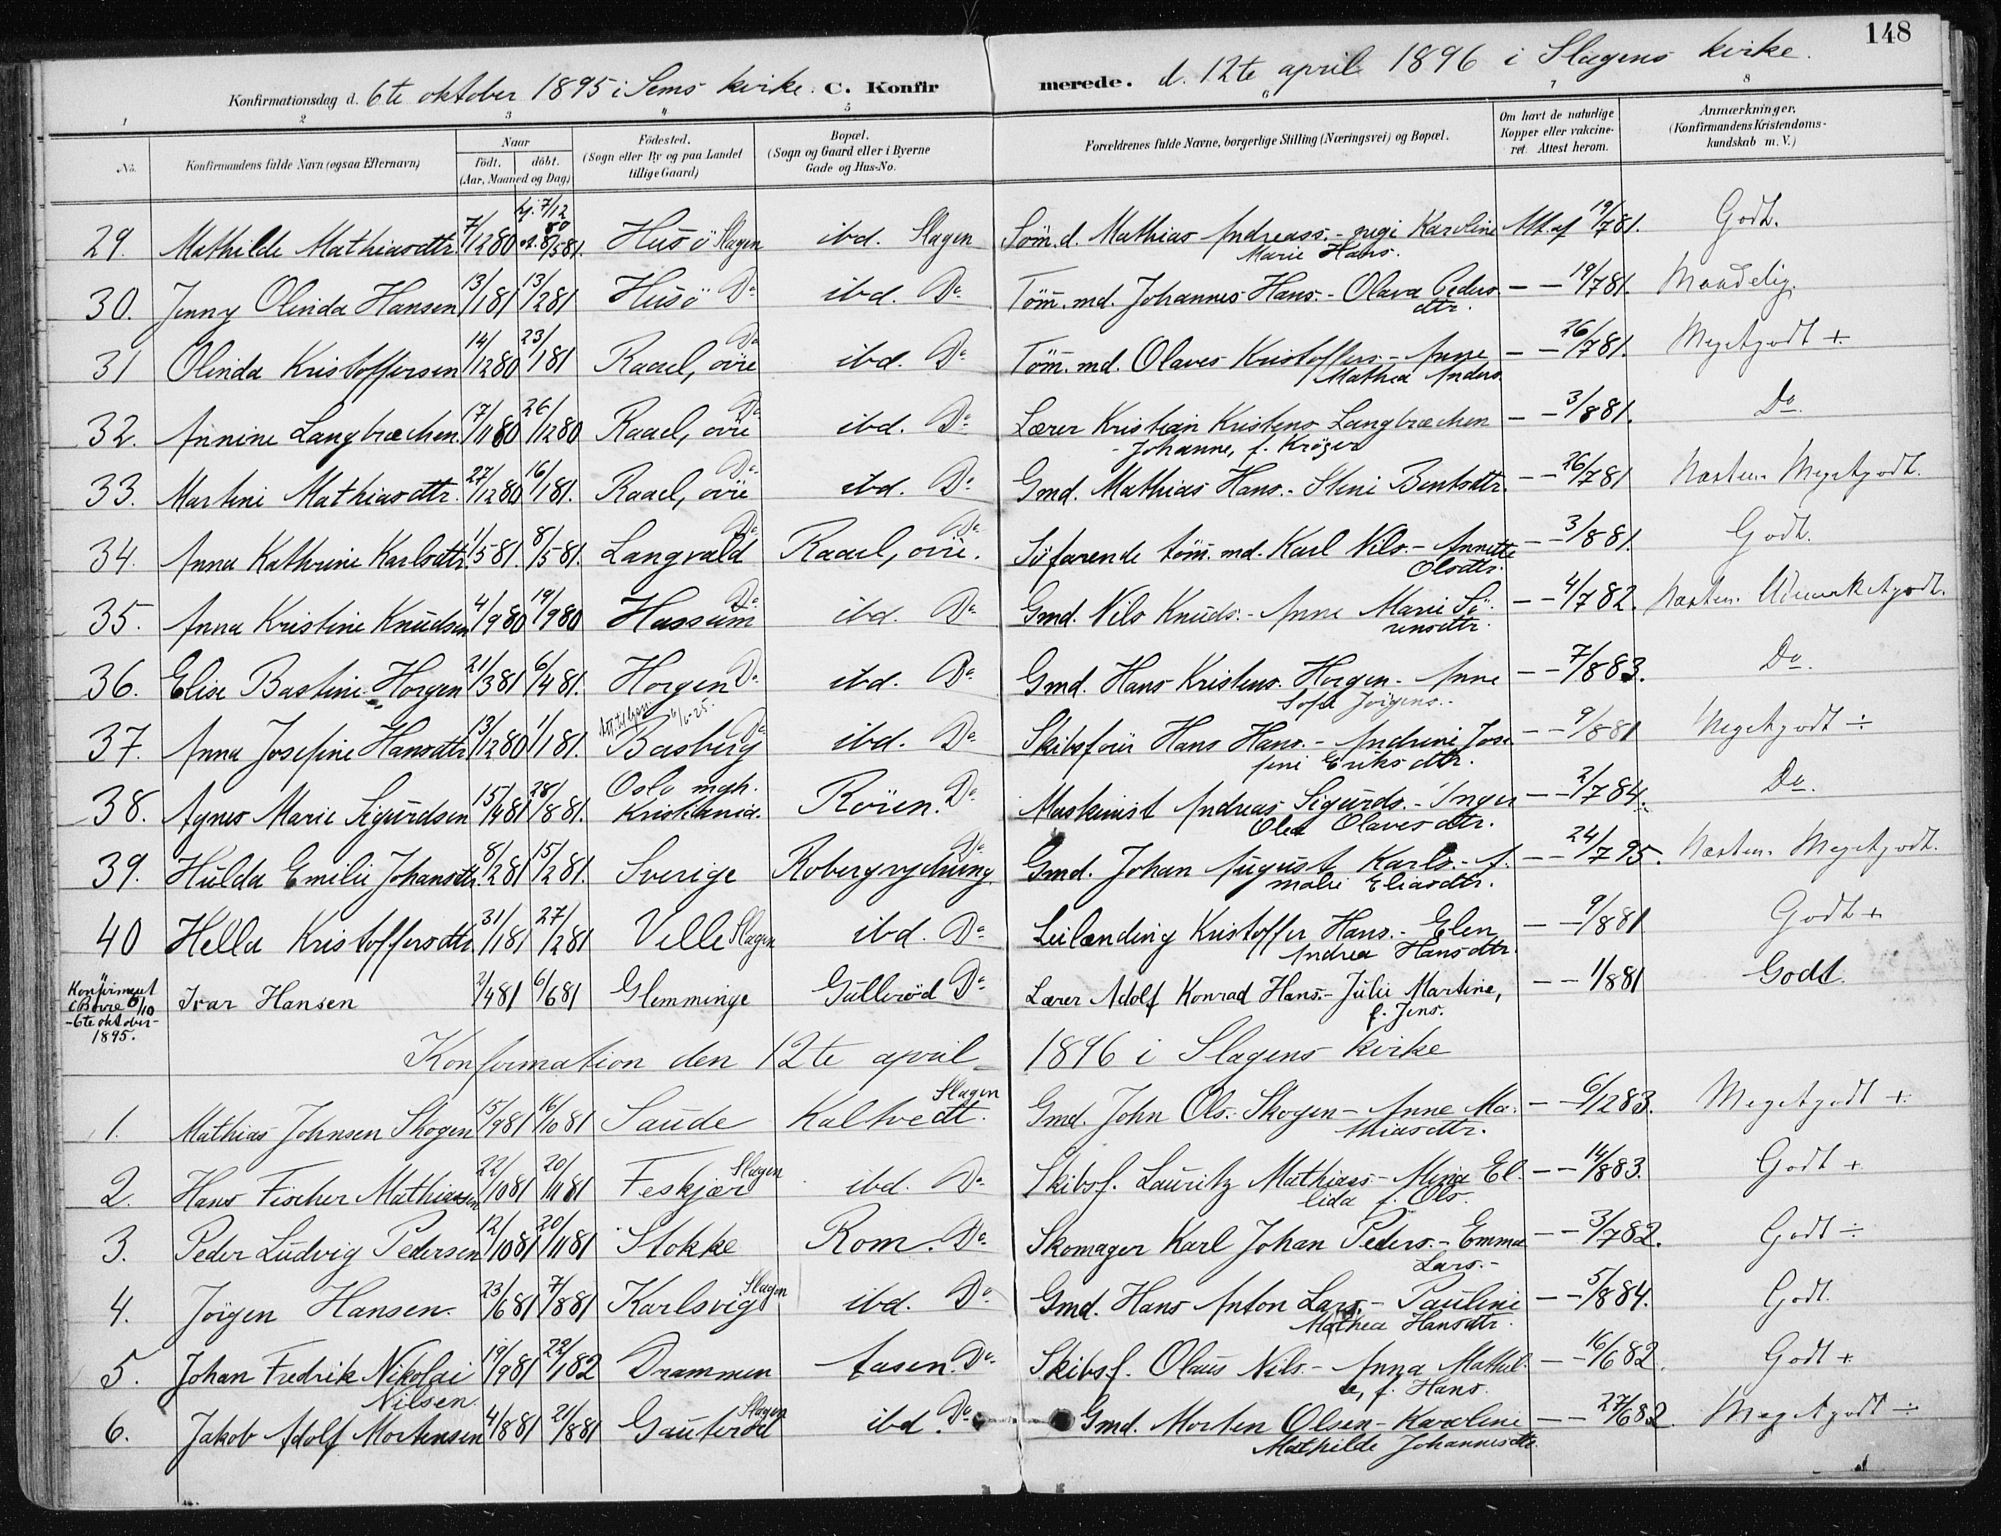 148
Konfirmationsdag d. 6te oktober 1895 i Sems kirke. C. Konfir merede. d. 12te april 1896 i Slagens kirke.
1 2 3 4 5 6 7 8
No. Konfirmandens fulde Navn (ogsaa Efternavn) Naar født, døbt. (Aar, Maaned og Dag) Fødested. (Sogn eller By og paa Landet tillige Gaard) Bopæl. (Sogn og Gaard eller i Byerne Gade og Hus-No. Forældrenes fulde Navne, borgerlige Stilling (Næringsvei) og Bopæl. Om havt de naturlige Kopper eller vaccineret. Attest herom. Anmærkninger. (Konfirmandens Kristendomskundskab m. V.)
29. Mathilde Mathiasdtr. 7/1280 hj. 7/12 80 8/581. Husö Slagen ibd. Slagen Söm.d. Mathias Andreass.- Karoline Marie Hans. Att. af 19/781. Godt.
30. Jenny Olinda Hansen 13/181 13/281 Husö Do ibd. Do Töm.md. Johannes Hans.- Olava Peders dtr. — — 19/781. Maadelig.
31 Olinda Kristoffersen 14/1280 23/181 Raael, övre Do ibd. Do Töm.md. Olaves Kristoffers.- Anne Mathea Anders. — — 26/781. Megetgodt +
32. Annine Langbræchen 17/1180 26/1280 Raael, övre Do ibd. Do Lærer Kristian Kristens. Langbræchen - Johanne, f. Kröger — — 3/881. Do.
33. Martini Mathiasdtr. 27/1280 16/181. Raael, övre Do ibd. Do Gmd. Mathias Hans.- Stini Bentsdtr. — — 26/781 Næsten Megetgodt.
34. Anna Kathrine Karlsdtr. 1/581. 8/581. Langvald Do Raael, övre. Do Söfarende töm.md. Karl Nils.- Annette Olsdtr. — — 3/881. Godt.
35. Anna Kristine Knudsen 4/980 19/980 Hassum Do ibd. Do Gmd. Nils Knuds.- Anne Marie Sörensdtr. — — 4/782. Næsten Udmerketgodt.
36. Elise Bastine Horgen 21/381 6/481. Horgen Do ibd. Do Gmd. Hans Kristens. Horgen- Anne Sofie Jörgens.. — — 7/883. Do.
37. Anna Josefine Hansdtr 13/1280 1/181. Basberg Do ibd. Do Skibsför Hans Hans.- Andrine Josefine Eriksdtr. — — 9/881 Megetgodt ÷
38. Agnes Marie Sigurdsen 15/481 28/881. Oslo mgh. Kristiania. Rören. Do Maskinist Andreas Sigurds.- Inger Olea Olavesdtr. — — 2/784. Do.
39. Hulda Emilie Johansdtr. 8/281 15/281. Sverige Robergrydning Do Gmd. Johan August Karls.- Amalie Eliasdtr. — — 24/795. Næsten Megetgodt.
40 Hella Kristoffersdtr. 31/181 27/281 Velle Slagen ibd. Do Leilænding Kristoffer Hans.- Elen Andrea Hansdtr. — — 9/881 Godt +
Konfirmeret i Borre 6/10 -6te oktober- 1895. Ivar Hansen 2/481 6/681 Glemminge Gulleröd Do Lærer Adolf Konrad Hans.- Julie Martine, f. Jens. — — 1/881 Godt.
Konfirmation den 12te april 1896 i Slagens kirke
1. Mathias Johnsen Skogen 15/981 16/1081 Saude Kaltvedt Slagen Gmd. John Ols. Skogen- Anne Mathiasdtr. — — 6/1283. Megetgodt +
2. Hans Fischer Mathiassen 22/1081 20/1181 Feskjær Slagen ibd. Do Skibsf. Lauritz Mathiass- Mina Elida f. Ols. — — 14/883. Godt +
3. Peder Ludvig Pedersen 12/1081 20/1181 Stokke Rom. Do Skomager Karl Johan Peders.- Emma Lars.- — — 3/782. Godt ÷
4. Jörgen Hansen. 23/681 7/881 Karlsvig Slagen ibd. Do Gmd. Hans Anton Lars.- Pauline Mathea Hansdtr. — — 5/884. Godt.
5. Johan Fredrik Nikolai Nilsen 19/981 22/182 Drammen Aasen. Do Skibsf. Olaus Nils.- Anna Mathilde, f. Hans. — — 16/682. Godt +
6. Jakob Adolf Mortensen 4/881 21/881 Gauteröd Slagen ibd. Do Gmd. Morten Olsen- Karoline Mathilde Johannesdtr. — — 27/682. Megetgodt ÷